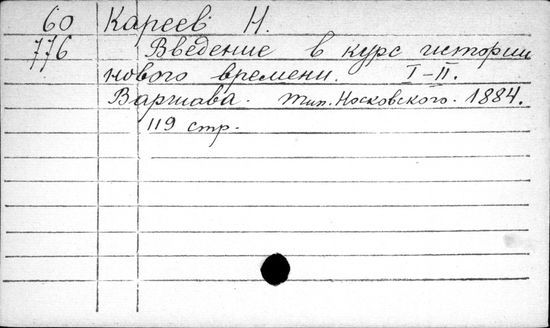 60 Кареев Н.
776 Введение в курс истории
нового времени. I-II.
Варшава. Тип. Носковского. 1884.
119 стр.